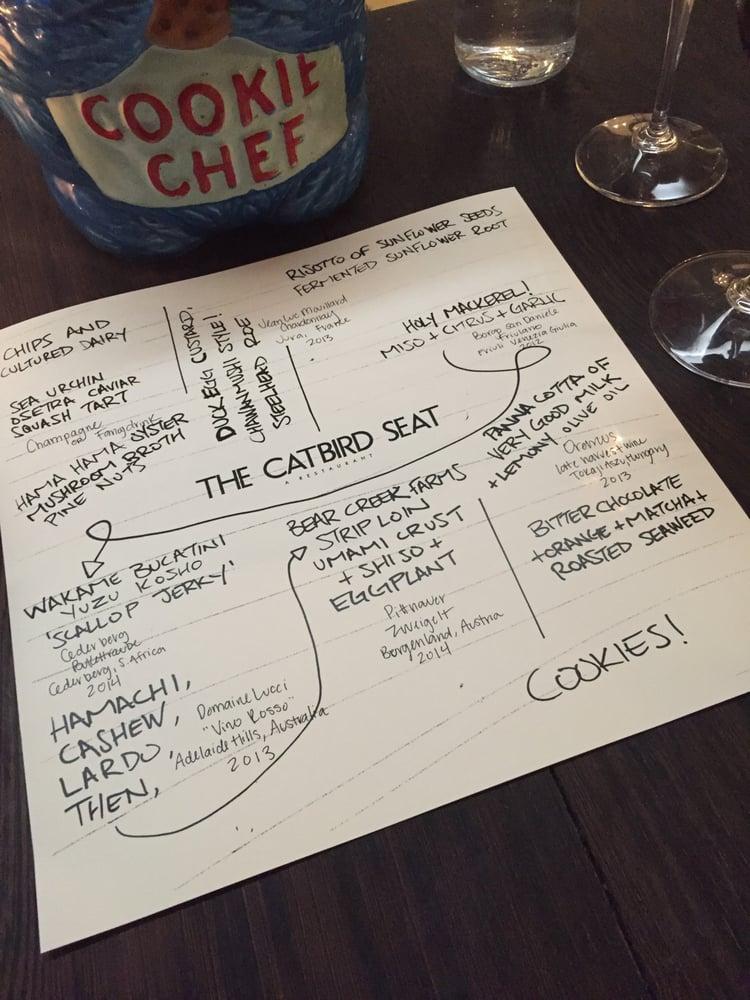 COOKIE
CHEF
CHIPS AND
CULTURED DAIRY
SEA URCHIN
OSETRA CAVIAR
SQUASH TART
Champagne
or Fangdrink
HAMA HAMA OYSTER
MUSHROOM BROTH
PINE NUTS
DUCK EGG CUSTARD,
CHAWANMUSHI STYLE!
STEELHEAD ROE
RISOTTO OF SUNFLOWER SEEDS
FERMENTED SUNFLOWER ROOT
Jean Luc Mouillard
Chardonnay
Jura, France
2013
HOLY MACKEREL!
MISO + CITRUS + GARLIC
Borgo san Daniele
Friulano
Friuli Venezia Giulia
2012
THE CATBIRD SEAT
A RESTAURANT
WAKAME BUCATINI
YUZU KOSHO
'SCALLOP JERKY'
Cederberg
Bukettraube
Cederberg, S. Africa
2014
HAMACHI,
CASHEW,
LARDO,
THEN,
Domaine Lucci
"Vino Rosso"
Adelaide Hills, Australia
2013
BEAR CREEK FARMS
STRIP LOIN
UMAMI CRUST
+ SHISO +
EGGPLANT
Pittnauer
Zweigelt
Burgenland, Austria
2014
PANNA COTTA OF
VERY GOOD MILK
+ LEMONY OLIVE OIL
Oremus
late harvest wine
Tokaji Aszu, Hungary
2013
BITTER CHOCOLATE
+ ORANGE + MATCHA +
ROASTED SEAWEED
COOKIES!